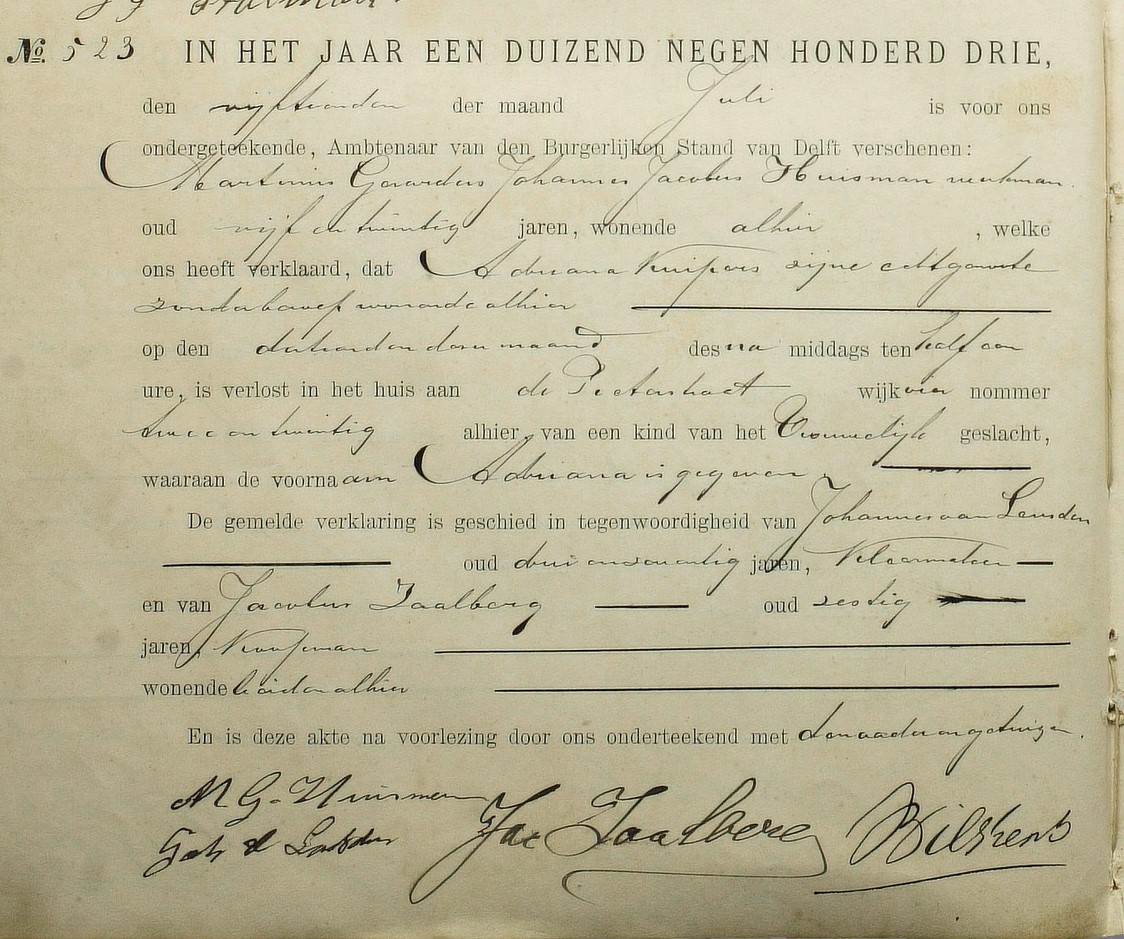 No. 523 IN HET JAAR EEN DUIZEND NEGEN HONDERD DRIE,
den vijftienden der maand Juli is voor ons
ondergeteekende, Ambtenaar van den Burgerlijken Stand van Delft verschenen:
Martinus Gerardus Johannes Jacobus Huisman werkman.
oud vijf en twintig jaren, wonende alhier , welke
ons heeft verklaard, dat Adriana Kuipers zijne echtgenoote
zonder beroep wonende alhier
op den dertienden dezer maand des na middags ten half een
ure, is verlost in het huis aan de Pieterstraat wijk vier nommer
twee en twintig alhier, van een kind van het Vrouwelijk geslacht,
waaraan de voornaam Adriana is gegeven.
De gemelde verklaring is geschied in tegenwoordigheid van Johannes van Leusden
oud drie en zeventig jaren,
en van Jacobus Zaalberg oud zestig
jaren, Koopman
wonende beiden alhier
En is deze akte na voorlezing door ons onderteekend met den vader en getuigen.
M G Huisman
Jac Zaalberg